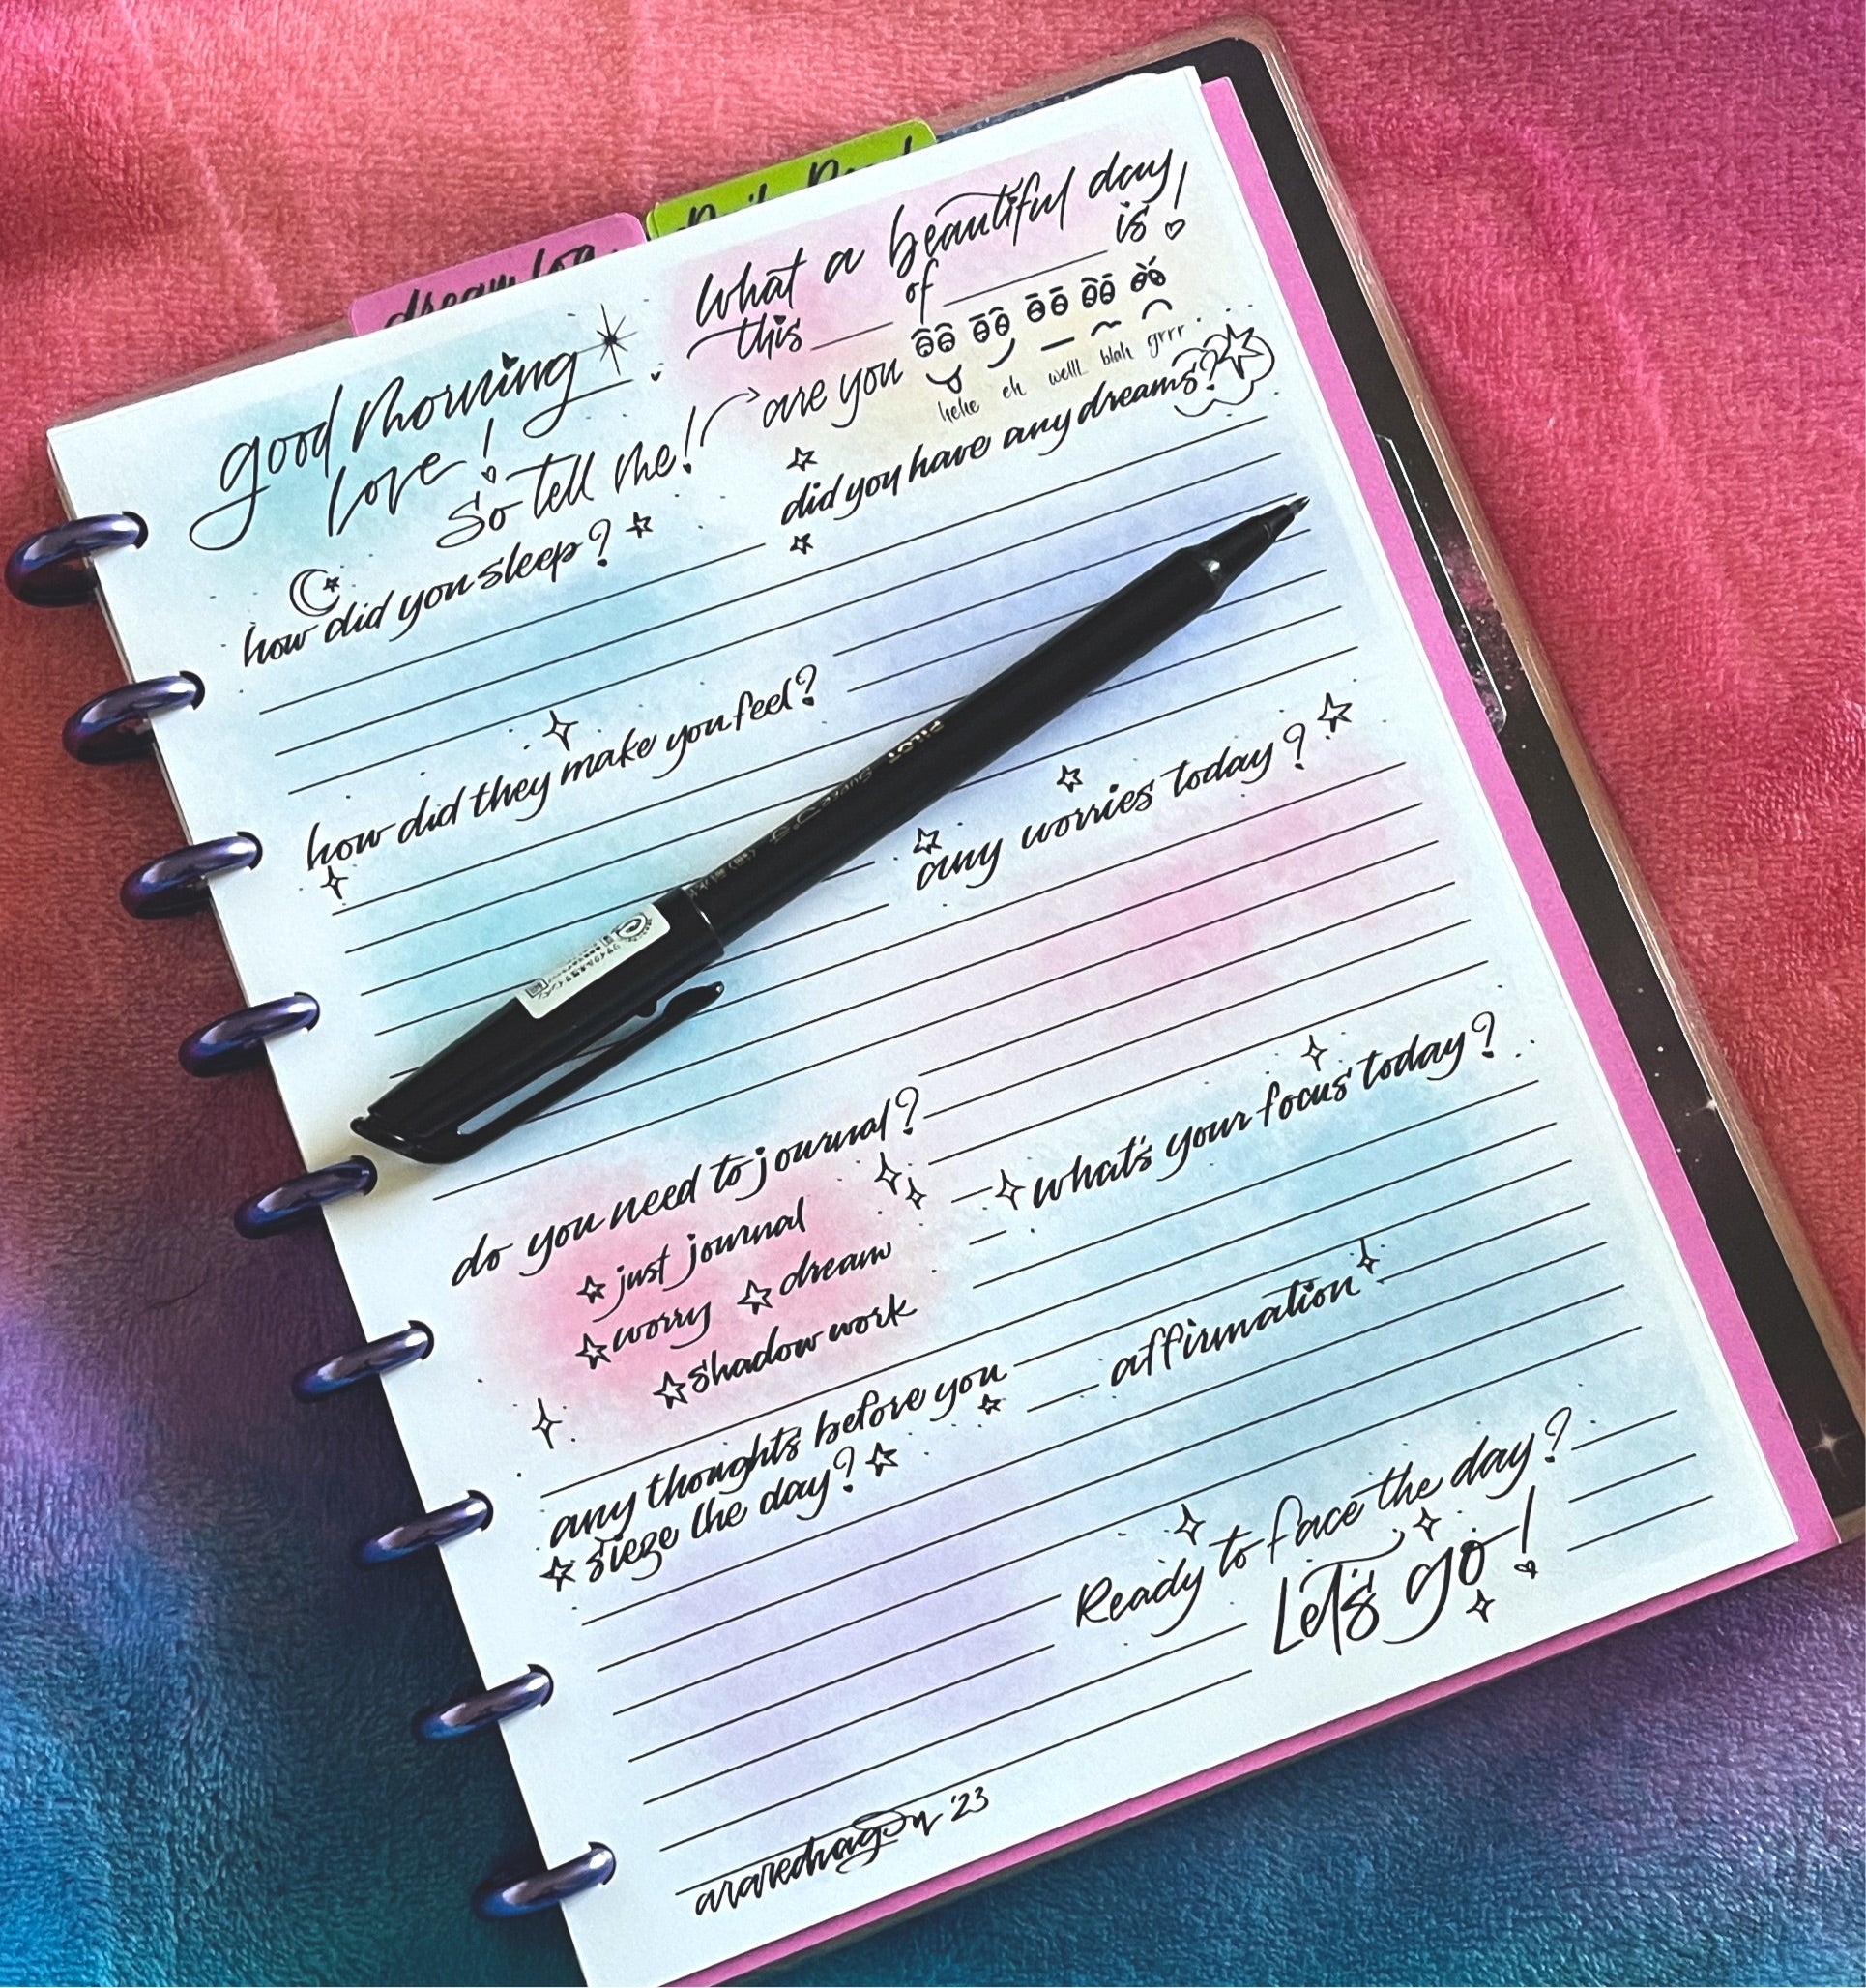 dream log
Daily
good morning
love!
So tell me!
What a beautiful day,
this ____ of ________ is!
are you
hehe eh welll blah grrr
how did you sleep?
did you have any dreams?
how did they make you feel?
any worries today?
PILOT
do you need to journal?
just journal
worry dream
shadow work
what's your focus today?
affirmation
any thoughts before you
sieze the day?
Ready to face the day?
Let's go!
araredragon '23